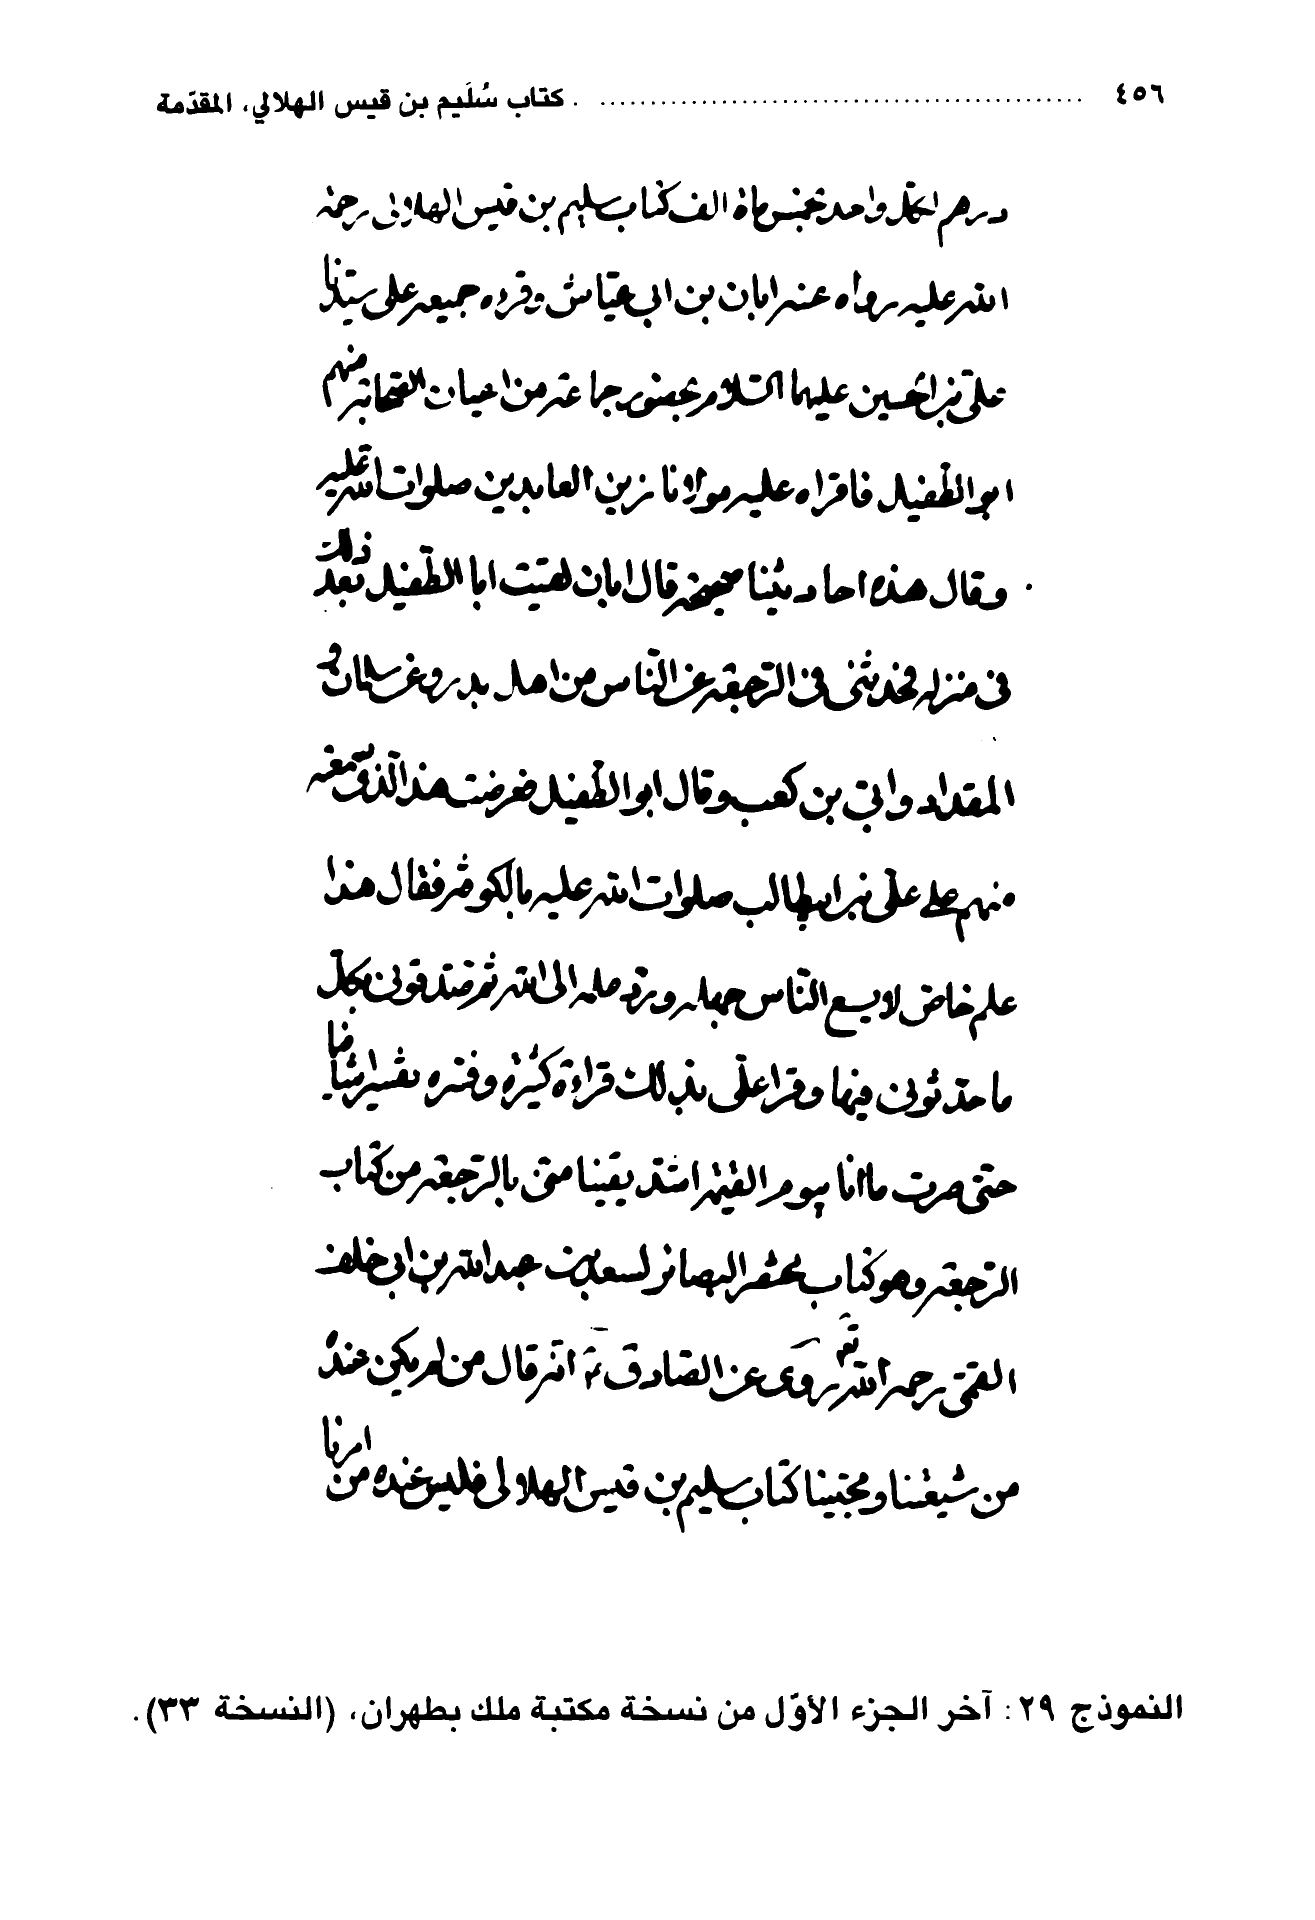 ٤٥٦ ........ كتاب سُلَيم بن قيس الهلالي، المقدّمة
درهم لكل واحد بخمس ماة الف كتاب سليم بن قيس الهلالى رحمة
الله عليه رواه عنه ابان بن ابى عيّاش وقرءه جميعه على سيّدنا
علىّ بن الحسين عليهما السّلام بحضور جماعة من اعيان الصّحابة منهم
ابو الطّفيل فاقراه عليه مولانا زين العابدين صلوات الله عليه
وقال هذه احاديثنا صحيحة قال ابان لقيت ابا الطّفيل بعد ذلك
فى منزله فحدثنى فى الرّجعة عن النّاس من اهل بدر وعن سلمان و
المقداد وابىّ بن كعب وقال ابو الطّفيل فعرضت هذا الّذى سمعته
منهم على علىّ بن ابيطالب صلوات الله عليه بالكوفة فقال هذا
علم خاص لا يسع النّاس جهله وردّ علمه الى الله ثم صدقونى بكلّ
ما حدّثونى فيها وقرا علّى بذلك قراءة كثيرة وفسّره تفسيرا شافيا
حتّى صرت ما انا بيوم القيٰمة اشدّ يقينا منّى بالرّجعة من كتاب
الرّجعة وهو كتاب مختصر البصائر لسعد بن عبد الله بن ابى خلف
القمىّ رحمه الله تعٰ روى عن الصّادق ع انّه قال من لم يكن عنده
من شيعتنا ومحبّينا كتاب سليم بن قيس الهلالى فليس عنده من امرنا
النموذج ٢٩: آخر الجزء الأوّل من نسخة مكتبة ملك بطهران، (النسخة ٣٣).